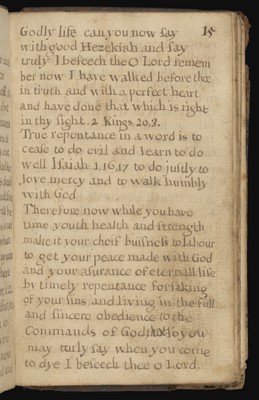 15
Godly life can you now say
with good Hezekiah and say
truly I beseech the O Lord remem
ber now I have walked before thee
in truth and with a perfect heart
and have done that which is right
in thy sight. 2 Kings. 20.3.
True repentance in a word is to
cease to do evil and learn to do
well Isaiah 1.16.17 to do justly to
love mercy and to walk humbly
with God
Therefore now while you have
time youth health and strength
make it your cheif buisnels to labour
to get your peace made with God
and your asurance of eternall life
by timely repentance forsaking
of your sins and living in the full
and sincere obedience to the
Commands of God that so you
may turly say when you come
to dye I beseech thee O Lord.